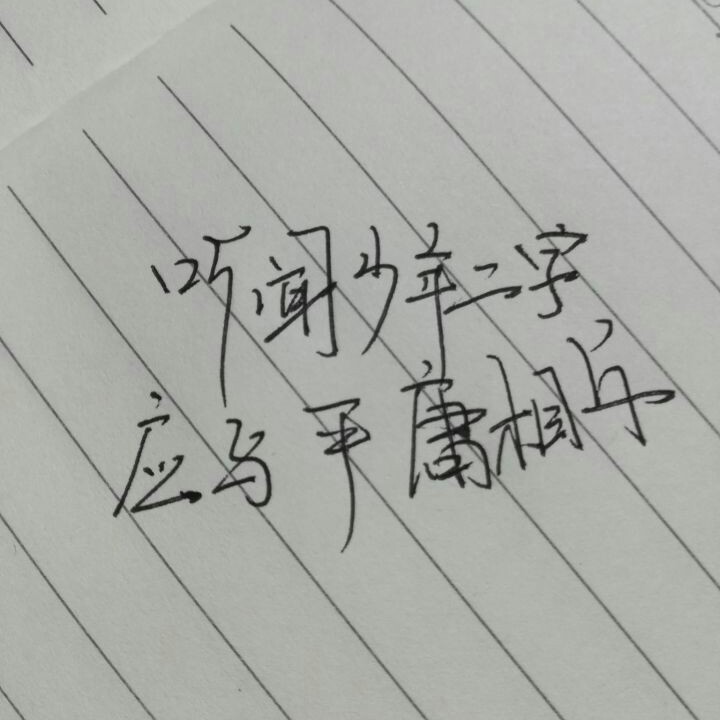 听闻少年二字
应与平庸相斥